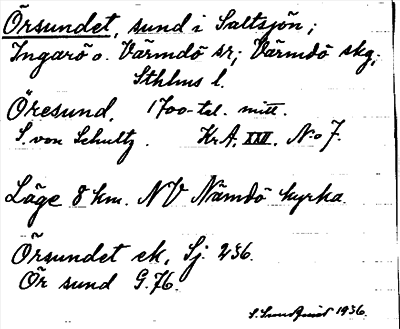 Örsundet, sund i Saltsjön;
Ingarö o. Värmdö sr; Värmdö skg;
Sthlms l.
Öresund. 1700-tal. mitt.
S. von Schultz. Kr.A. XXII. No 7.
Läge 8 km. NV Nämdö kyrka.
Örsundet ek. Sj. 236.
Ör sund G.76.
S. Sundqvist 1936.